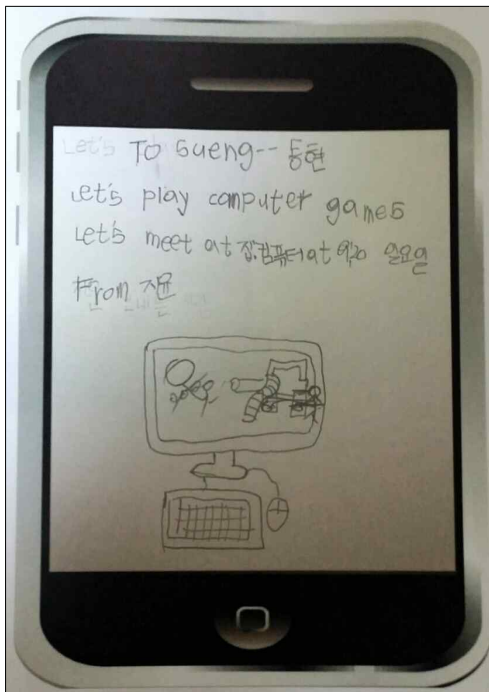 Let's To Sueng-- 동현
Let's play camputer games
Let's meet at 집.컴퓨터 at 일요일
From 지윤